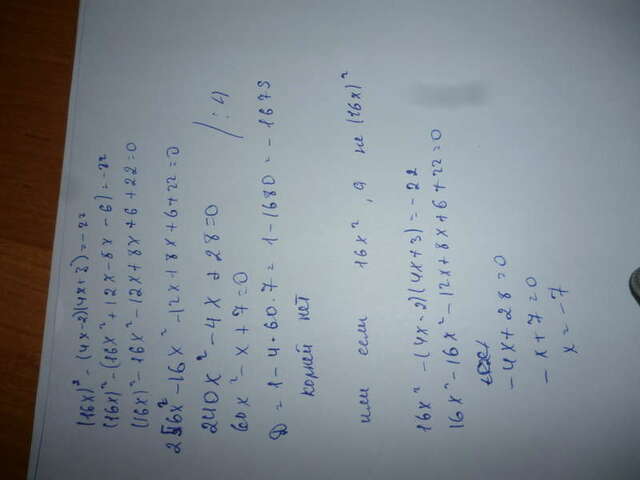 (16x)² - (4x-2)(4x+3)=-22
(16x)²-(16x²+12x-8x-6)=-22
(16x)²-16x²-12x+8x+6+22=0
256x²-16x²-12x+8x+6+22=0
240x²-4x+28=0 /:4
60x²-x+7=0
D=1-4·60·7=1-1680=-1679
корней нет
или если 16x², а не (16x)²
16x²-(4x-2)(4x+3)=-22
16x²-16x²-12x+8x+6+22=0
-4x+28=0
-x+7=0
x=-7